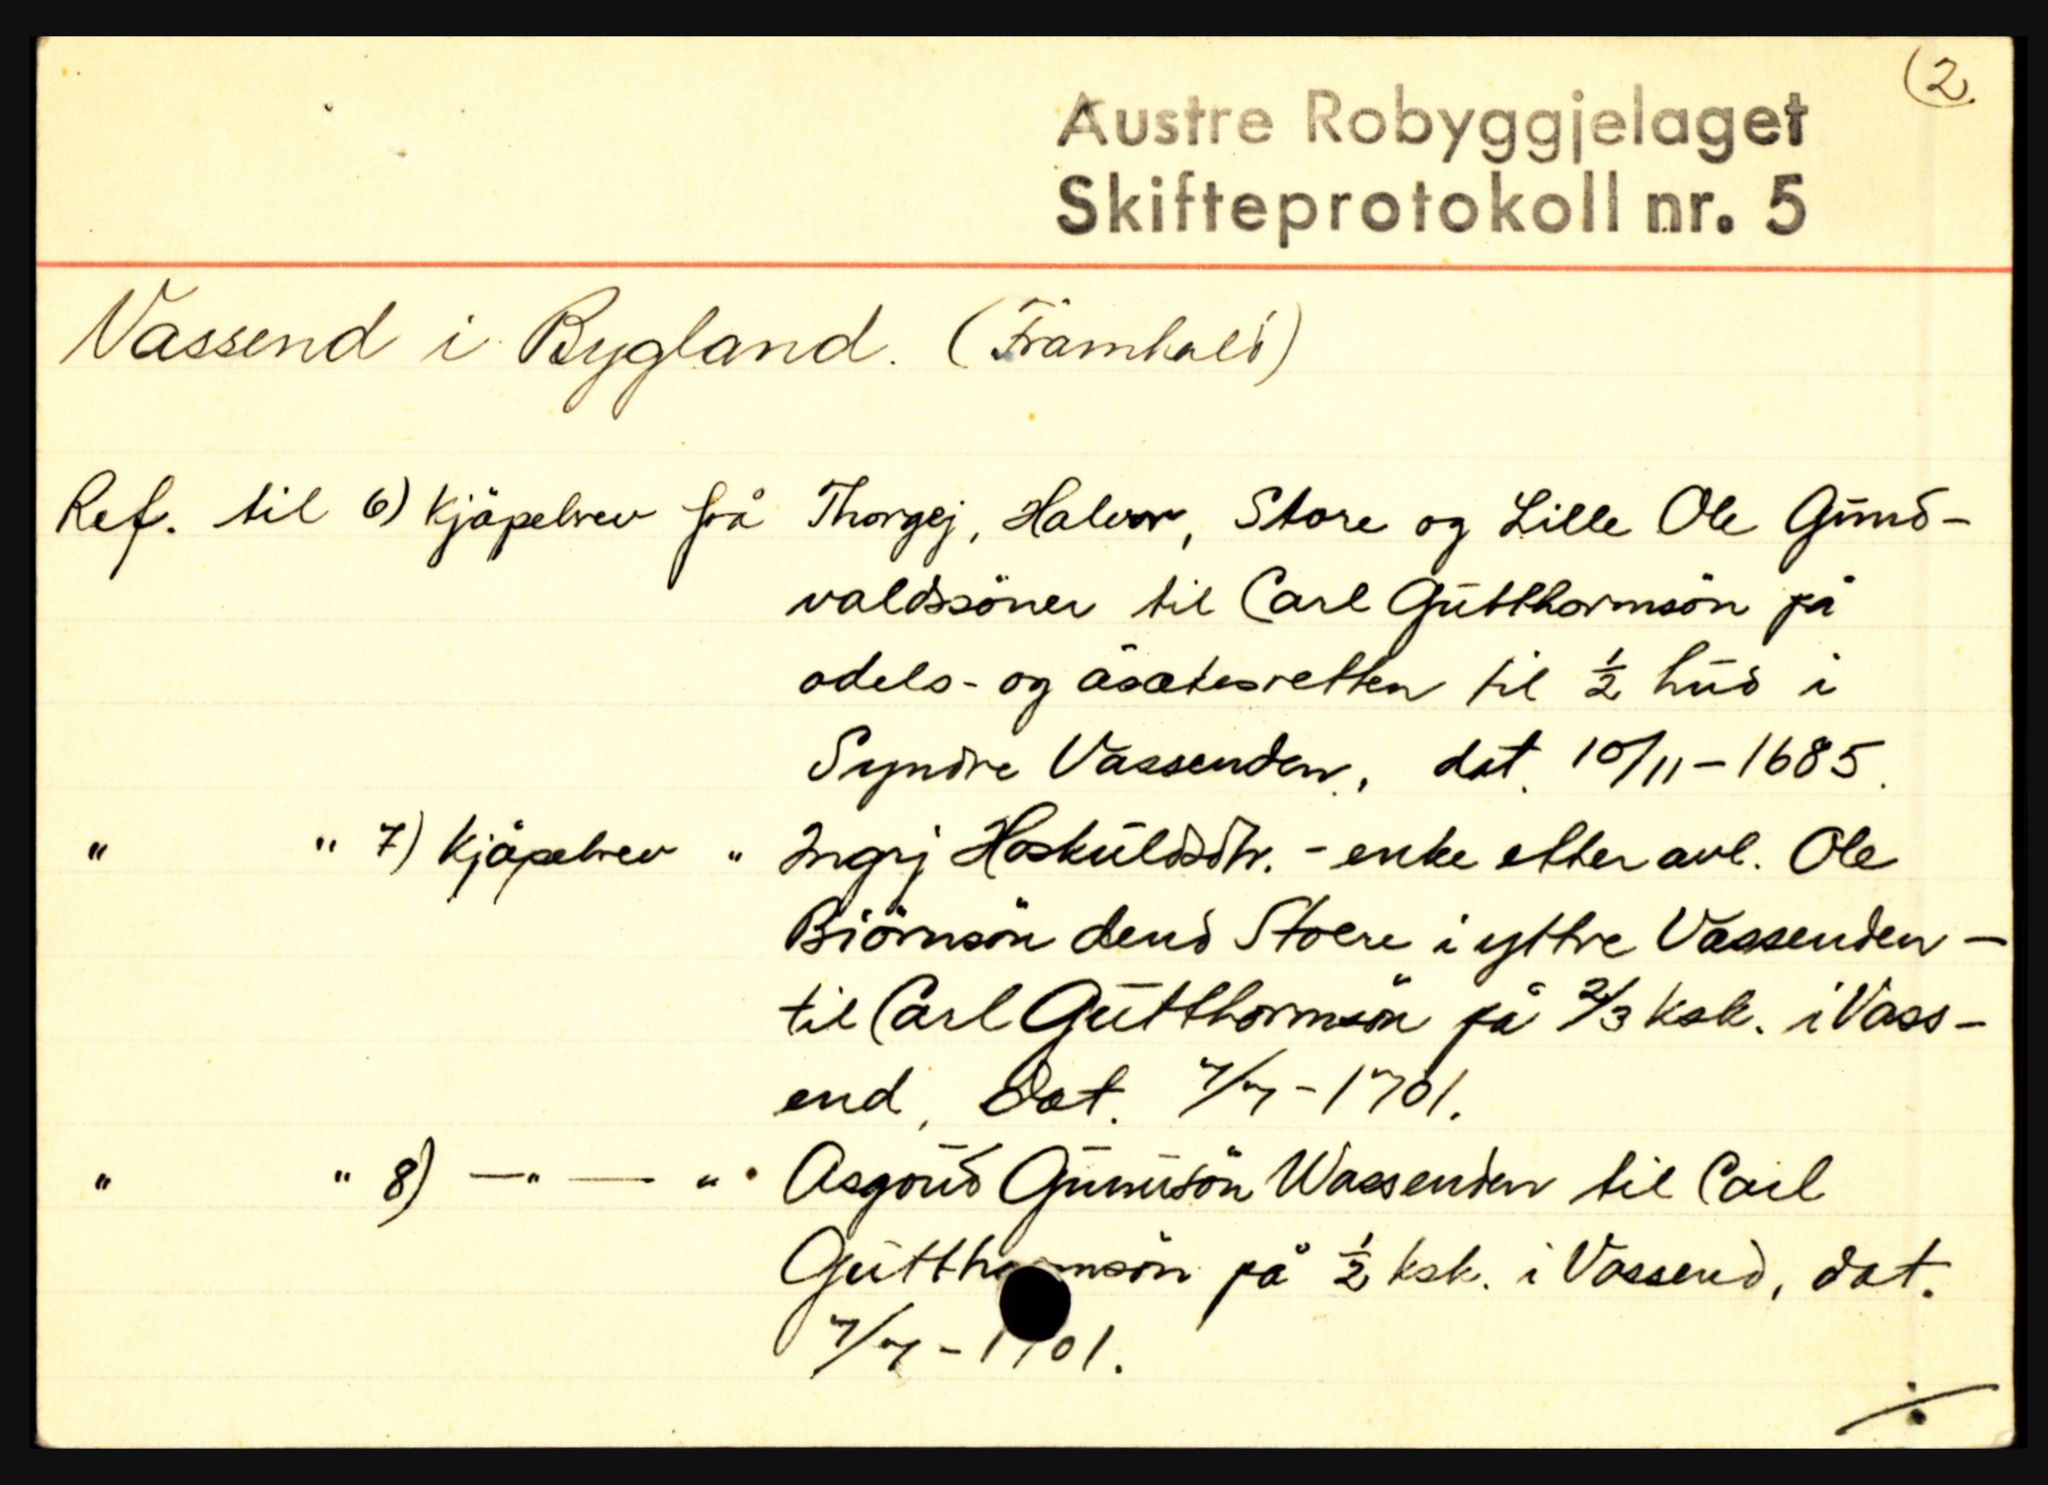 (2.
Austre Robyggjelaget
Skifteprotokoll nr. 5
Vassend i Bygland. (Framhald)
Ref. til 6) Kjöpebrev frå Thorgej, Halvor, Store og Lille Ole Gund-
valdssöner til Carl Gutthormsön på
odels- og åsætesretten til ½ hud i
Syndre Vassenden, dat. 10/11-1685.
" " 7) Kjöpebrev " Ingrj Hoskuldsdtr. - enke etter avl. Ole
Biörnsön dend Stoere i yttre Vassenden -
til Carl Gutthormsön på 2/3 ksk. i Vass-
end, dat. 7/7-1701.
" " 8) —"— " Asgoud Gunnisön Wassenden til Carl
Gutthormsön på ½ ksk. i Vassend, dat.
7/7-1701.
·/.